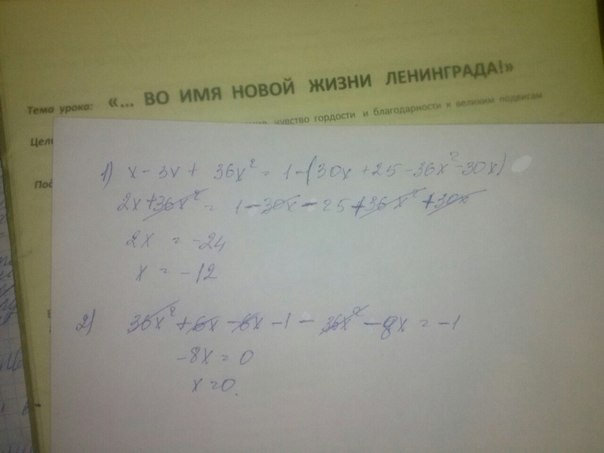 Тема урока: «... ВО ИМЯ НОВОЙ ЖИЗНИ ЛЕНИНГРАДА!»
чувство гордости и благодарности к великим подвигам
1) x - 3x + 36x² = 1 - (30x + 25 - 36x² - 30x)
2x + 36x² = 1 - 30x - 25 + 36x² + 30x
2x = -24
x = -12
2) 36x² + 6x - 6x - 1 - 36x² - 8x = -1
-8x = 0
x = 0.